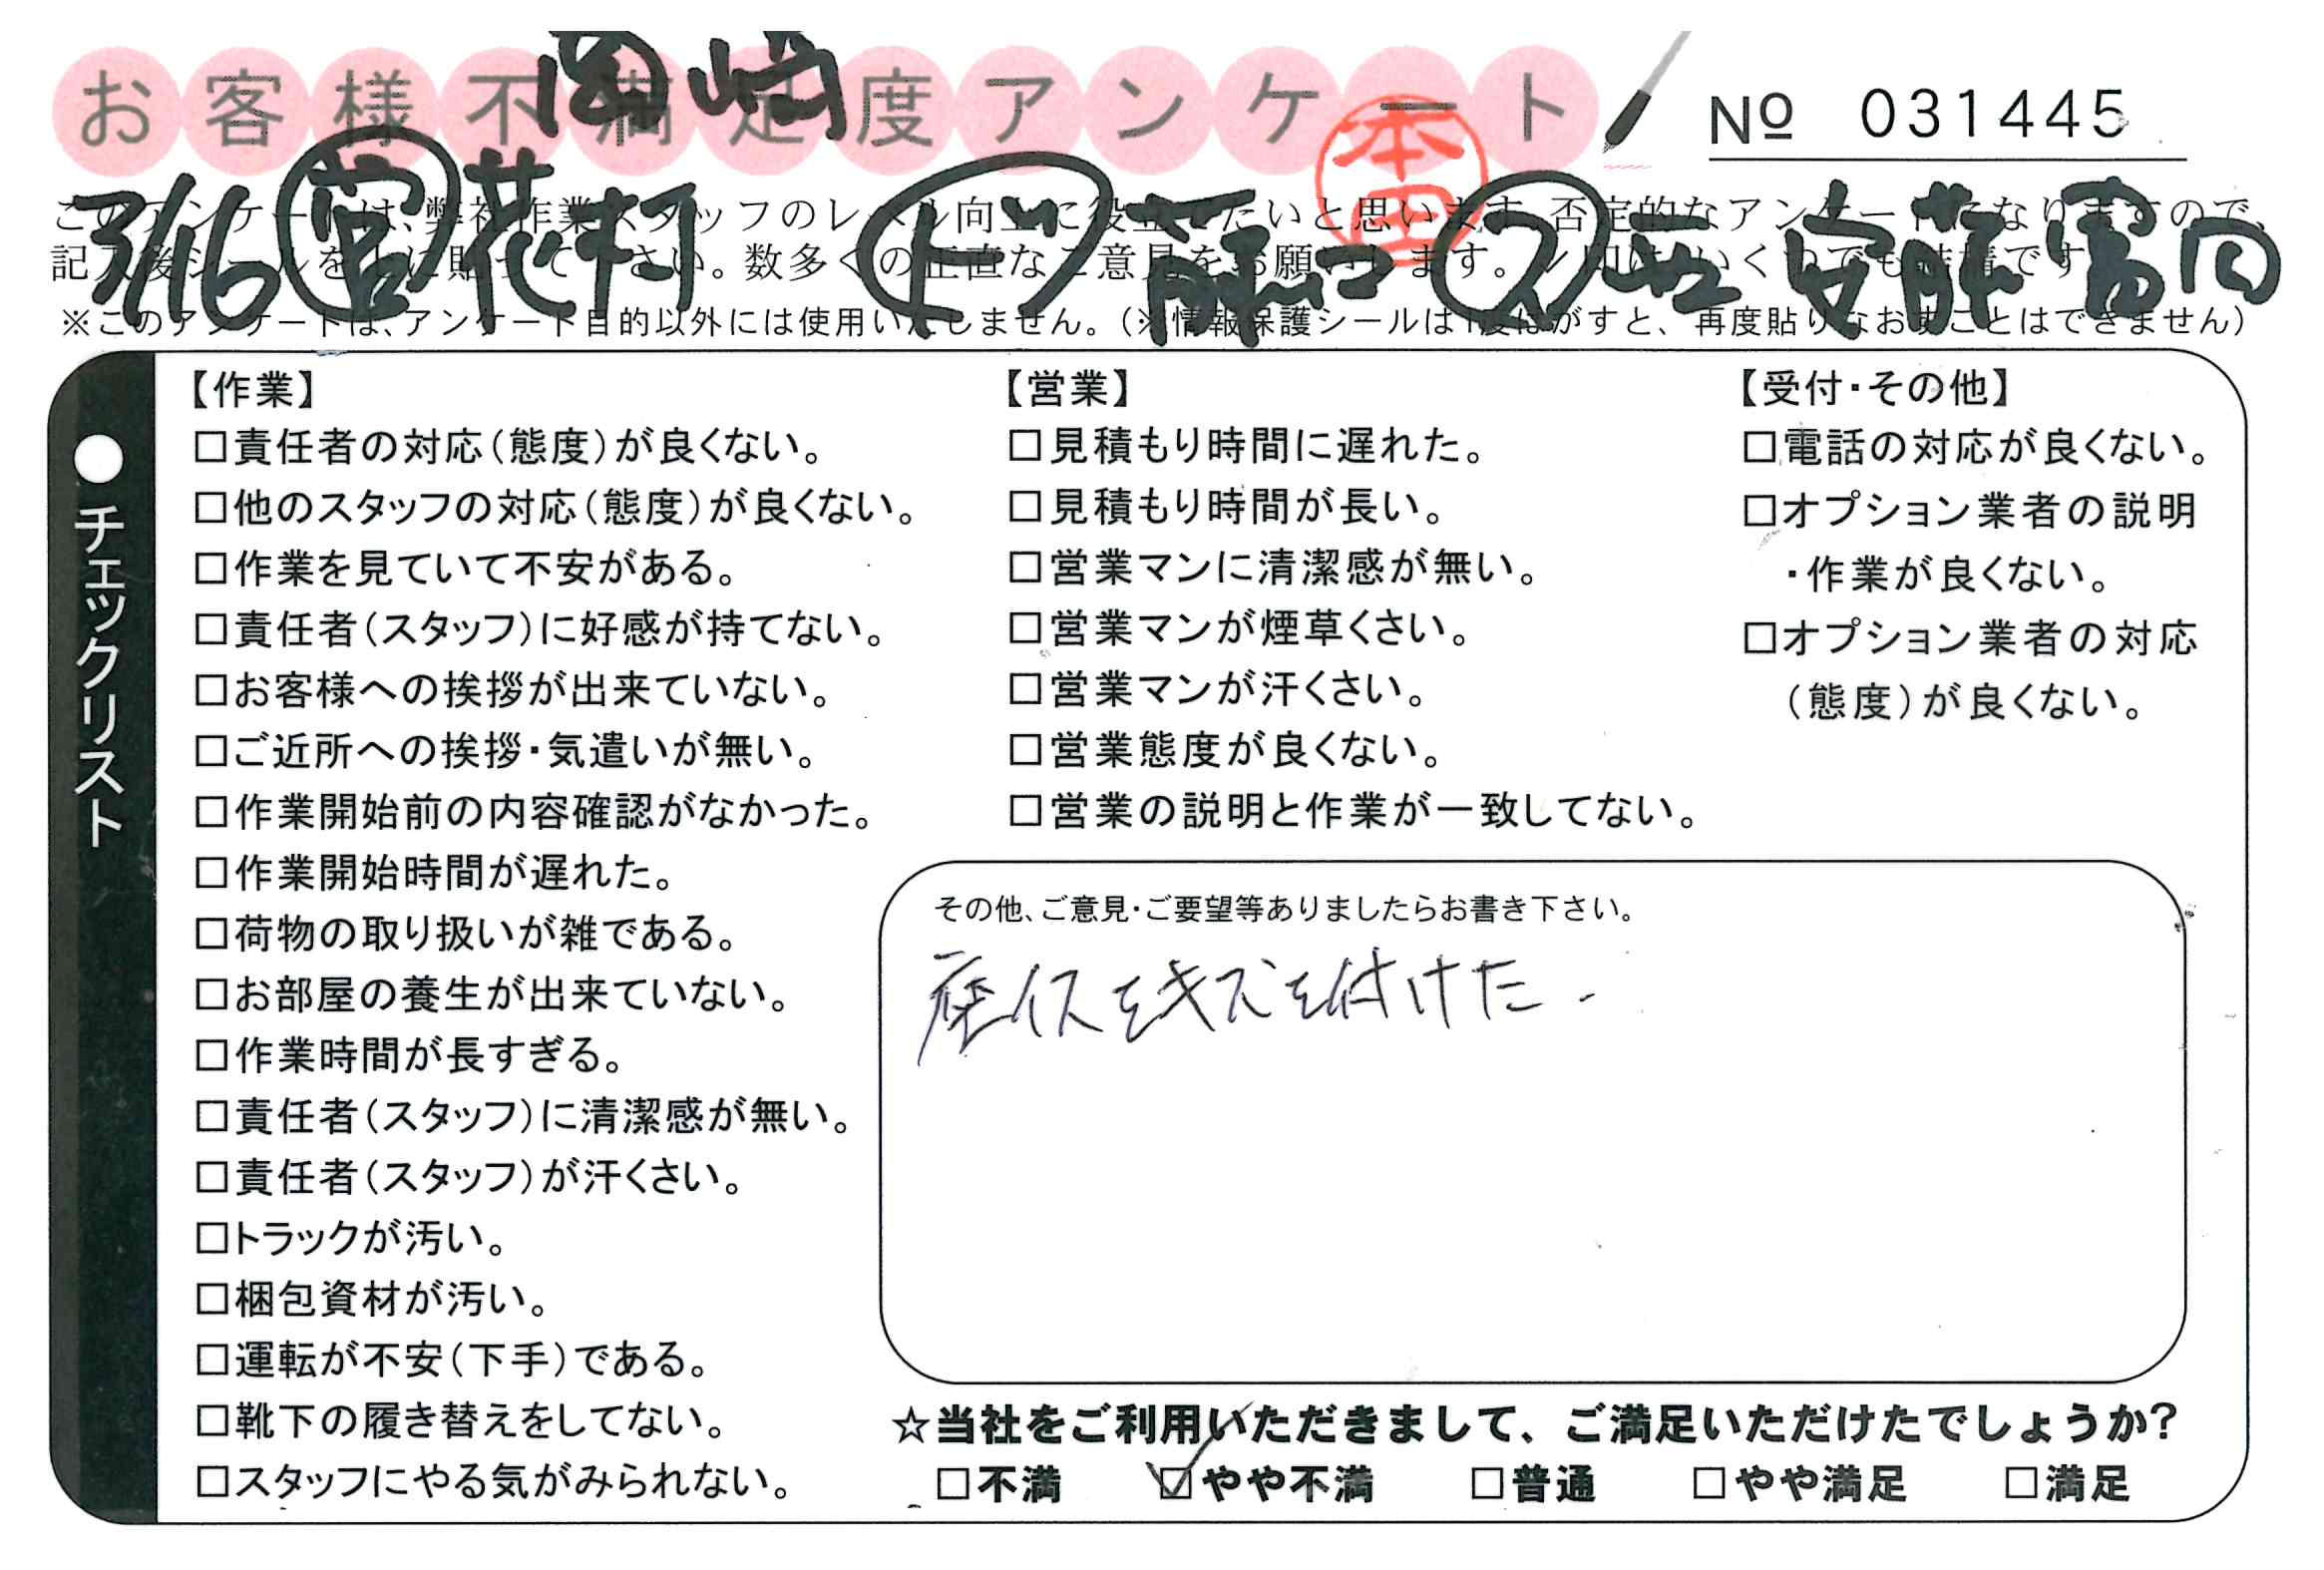 お客様不満足度アンケート
岡崎
№ 031445
本田
3/16 営 花村 ド 藤口 ス 西 安藤 富向
このアンケートは、弊社作業スタッフのレベル向上に役立てたいと思います。否定的なアンケートになりますので、
記入後シールを上に貼って下さい。数多くの正直なご意見をお願いします。レ印はいくつでも結構です
※このアンケートは、アンケート目的以外には使用いたしません。(※情報保護シールは1度はがすと、再度貼りなおすことはできません)
●チェックリスト
【作業】
□責任者の対応(態度)が良くない。
□他のスタッフの対応(態度)が良くない。
□作業を見ていて不安がある。
□責任者(スタッフ)に好感が持てない。
□お客様への挨拶が出来ていない。
□ご近所への挨拶・気遣いが無い。
□作業開始前の内容確認がなかった。
□作業開始時間が遅れた。
□荷物の取り扱いが雑である。
□お部屋の養生が出来ていない。
□作業時間が長すぎる。
□責任者(スタッフ)に清潔感が無い。
□責任者(スタッフ)が汗くさい。
□トラックが汚い。
□梱包資材が汚い。
□運転が不安(下手)である。
□靴下の履き替えをしてない。
□スタッフにやる気がみられない。
【営業】
□見積もり時間に遅れた。
□見積もり時間が長い。
□営業マンに清潔感が無い。
□営業マンが煙草くさい。
□営業マンが汗くさい。
□営業態度が良くない。
□営業の説明と作業が一致してない。
【受付・その他】
□電話の対応が良くない。
□オプション業者の説明
・作業が良くない。
□オプション業者の対応
(態度)が良くない。
その他、ご意見・ご要望等ありましたらお書き下さい。
座イスをキズを付けた.
☆当社をご利用いただきまして、ご満足いただけたでしょうか?
□不満 ☑やや不満 □普通 □やや満足 □満足